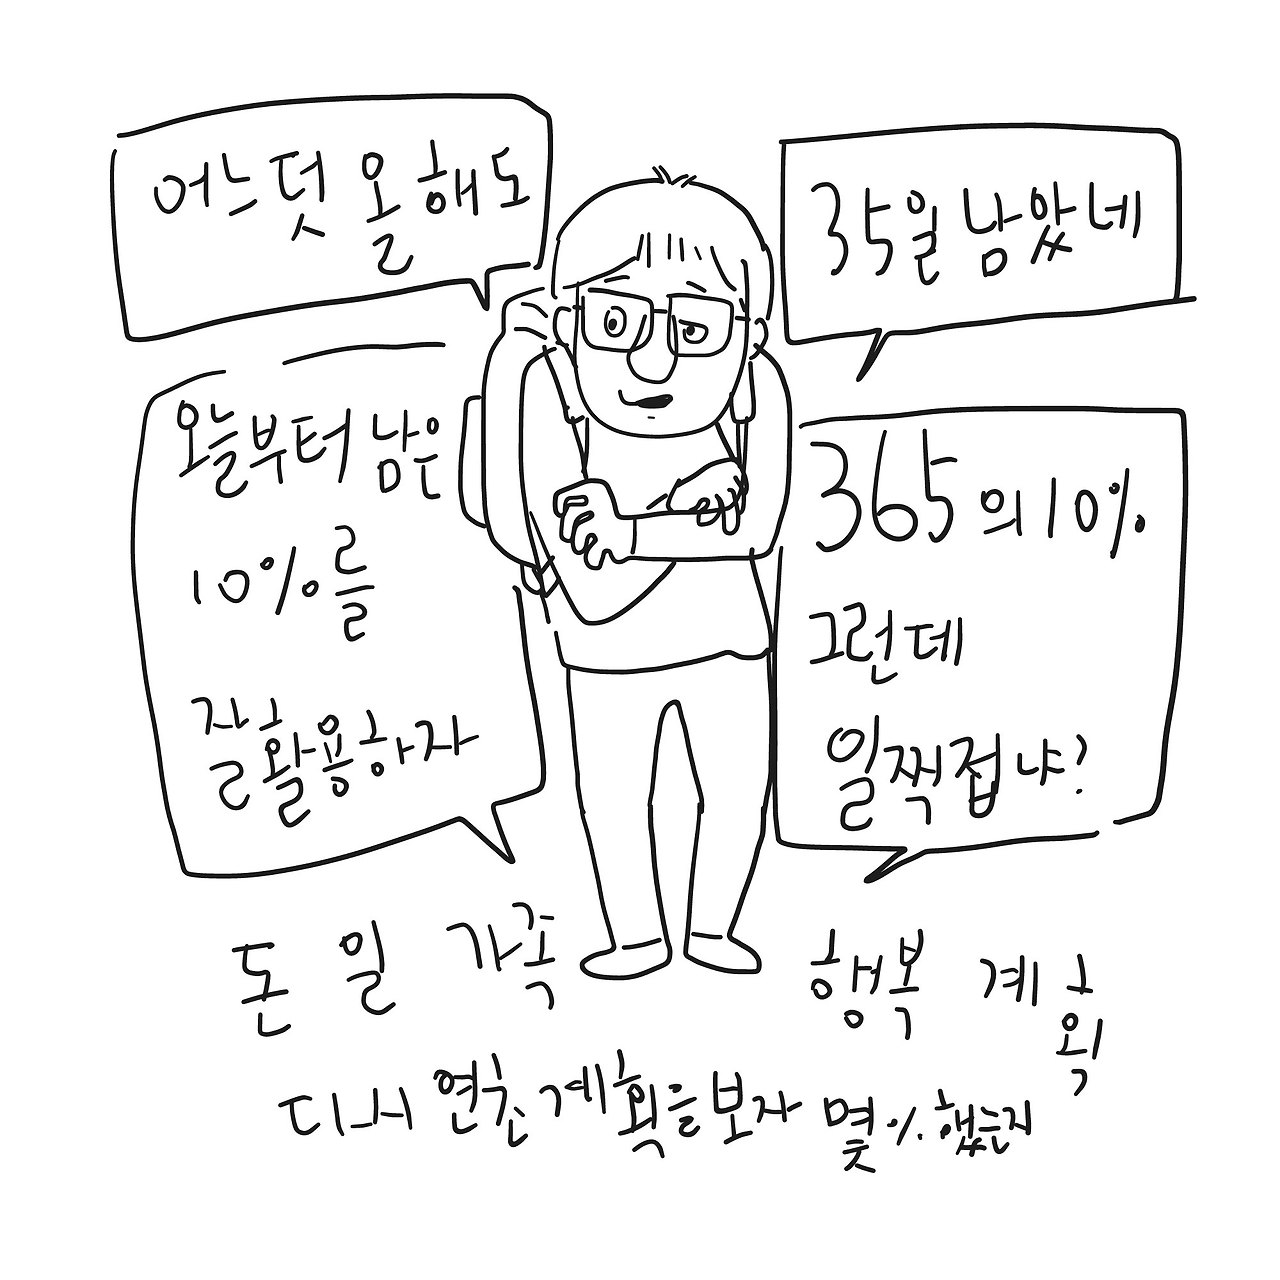 어느덧 올해도
35일 남았네
365의 10%
그런데
일찍접냐?
오늘부터 남은
10%를
잘활용하자
돈 일 가족 행복 계획
다시 연초계획을보자 몇%했는지